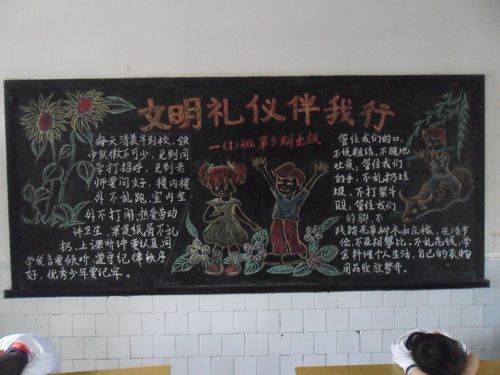 文明礼仪伴我行
一(1)班第3期出版
每天清晨早到校,领
巾队徽不可少,见到同
学打招手,见到老
师要问好,楼内楼
外不乱跑,室内室
外不打闹,热爱劳动
讲卫生,果皮纸屑不乱
扔,上课听讲要认真,同
学发言要倾听,遵守纪律秩序
好,优秀少年要记牢。
管住我们的口,
不说粗话,不随地
吐痰,管住我们
的手,不乱扔垃
圾,不打架斗
殴,管住我们
的脚,不
践踏花草树木和庄稼,生活节
俭,不互相攀比,不乱花钱,学
会料理个人生活,自己的衣物
用品收放整齐。